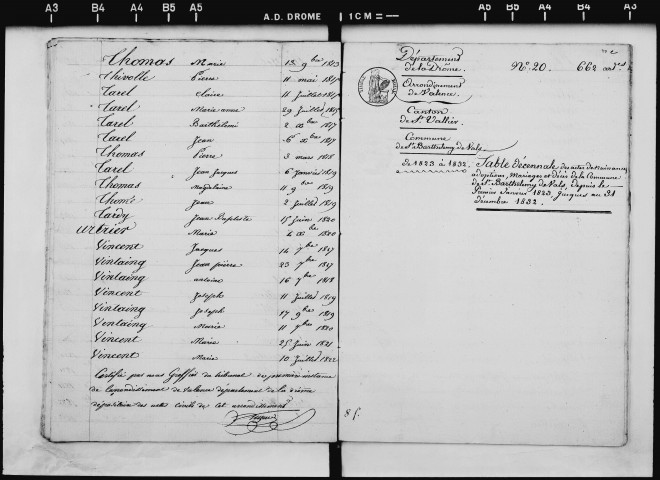 A3 B4 A4 B5 A5 A.D. DROME 1 CM = A5 B5 A4 B4 A3
Thomas Marie 13 9bre 1813
Thivolle Pierre 11 mai 1815
Tarel Claire 11 Juillet 1815
Tarel Marie anne 29 Juillet 1815
Tarel Barthélemi 2 Xbre 1817
Tarel Jean 6 Xbre 1817
Thomas Pierre 3 mars 1818
Tarel Jean Jaques 6 Janvier 1819
Thomas Magdelaine 11 9bre 1819
Thomé Jean 2 Juillet 1819
Tardy Jean Baptiste 15 Juin 1820
Marie 4 Xbre 1820
Vincent Jacques 14 7bre 1817
Vintaing Jean pierre 23 7bre 1817
Vintaing antoine 16 7bre 1818
Vincent Joseph 11 Juillet 1819
Vintaing Joseph 17 9bre 1819
Vintaing Marie 11 7bre 1820
Vincent Marie 25 Juin 1821
Vincent Marie 10 Juillet 1822
Certifié par nous Greffier du tribunal de première instance
de l'arrondissement de Valence département de la drome
dépositaire des actes civils de cet arrondissement
Département
de la Drôme.
N° 20. 662
Arrondissement
de Valence.
Canton
de St. Vallier.
Commune
de St. Barthelemy de Vals.
De 1823 à 1832.
Table décennale des actes de naissances,
adoptions, Mariages et décès de la Commune
de St. Barthelemy de Vals, depuis le
Premier Janvier 1823, jusques au 31
décembre 1832.
8 f.